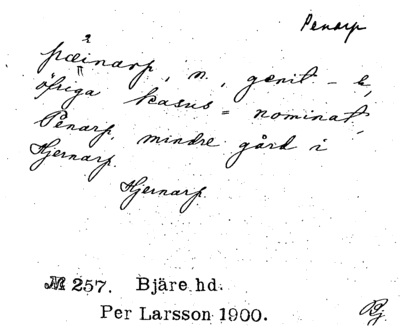 Penarp
pæinarp, n., genit – s,
öfriga kasus = nominat.
Penarp, mindre gård i
Hjernarp.
Hjernarp.
№ 257. Bjäre hd.
Per Larsson 1900.
Bj.